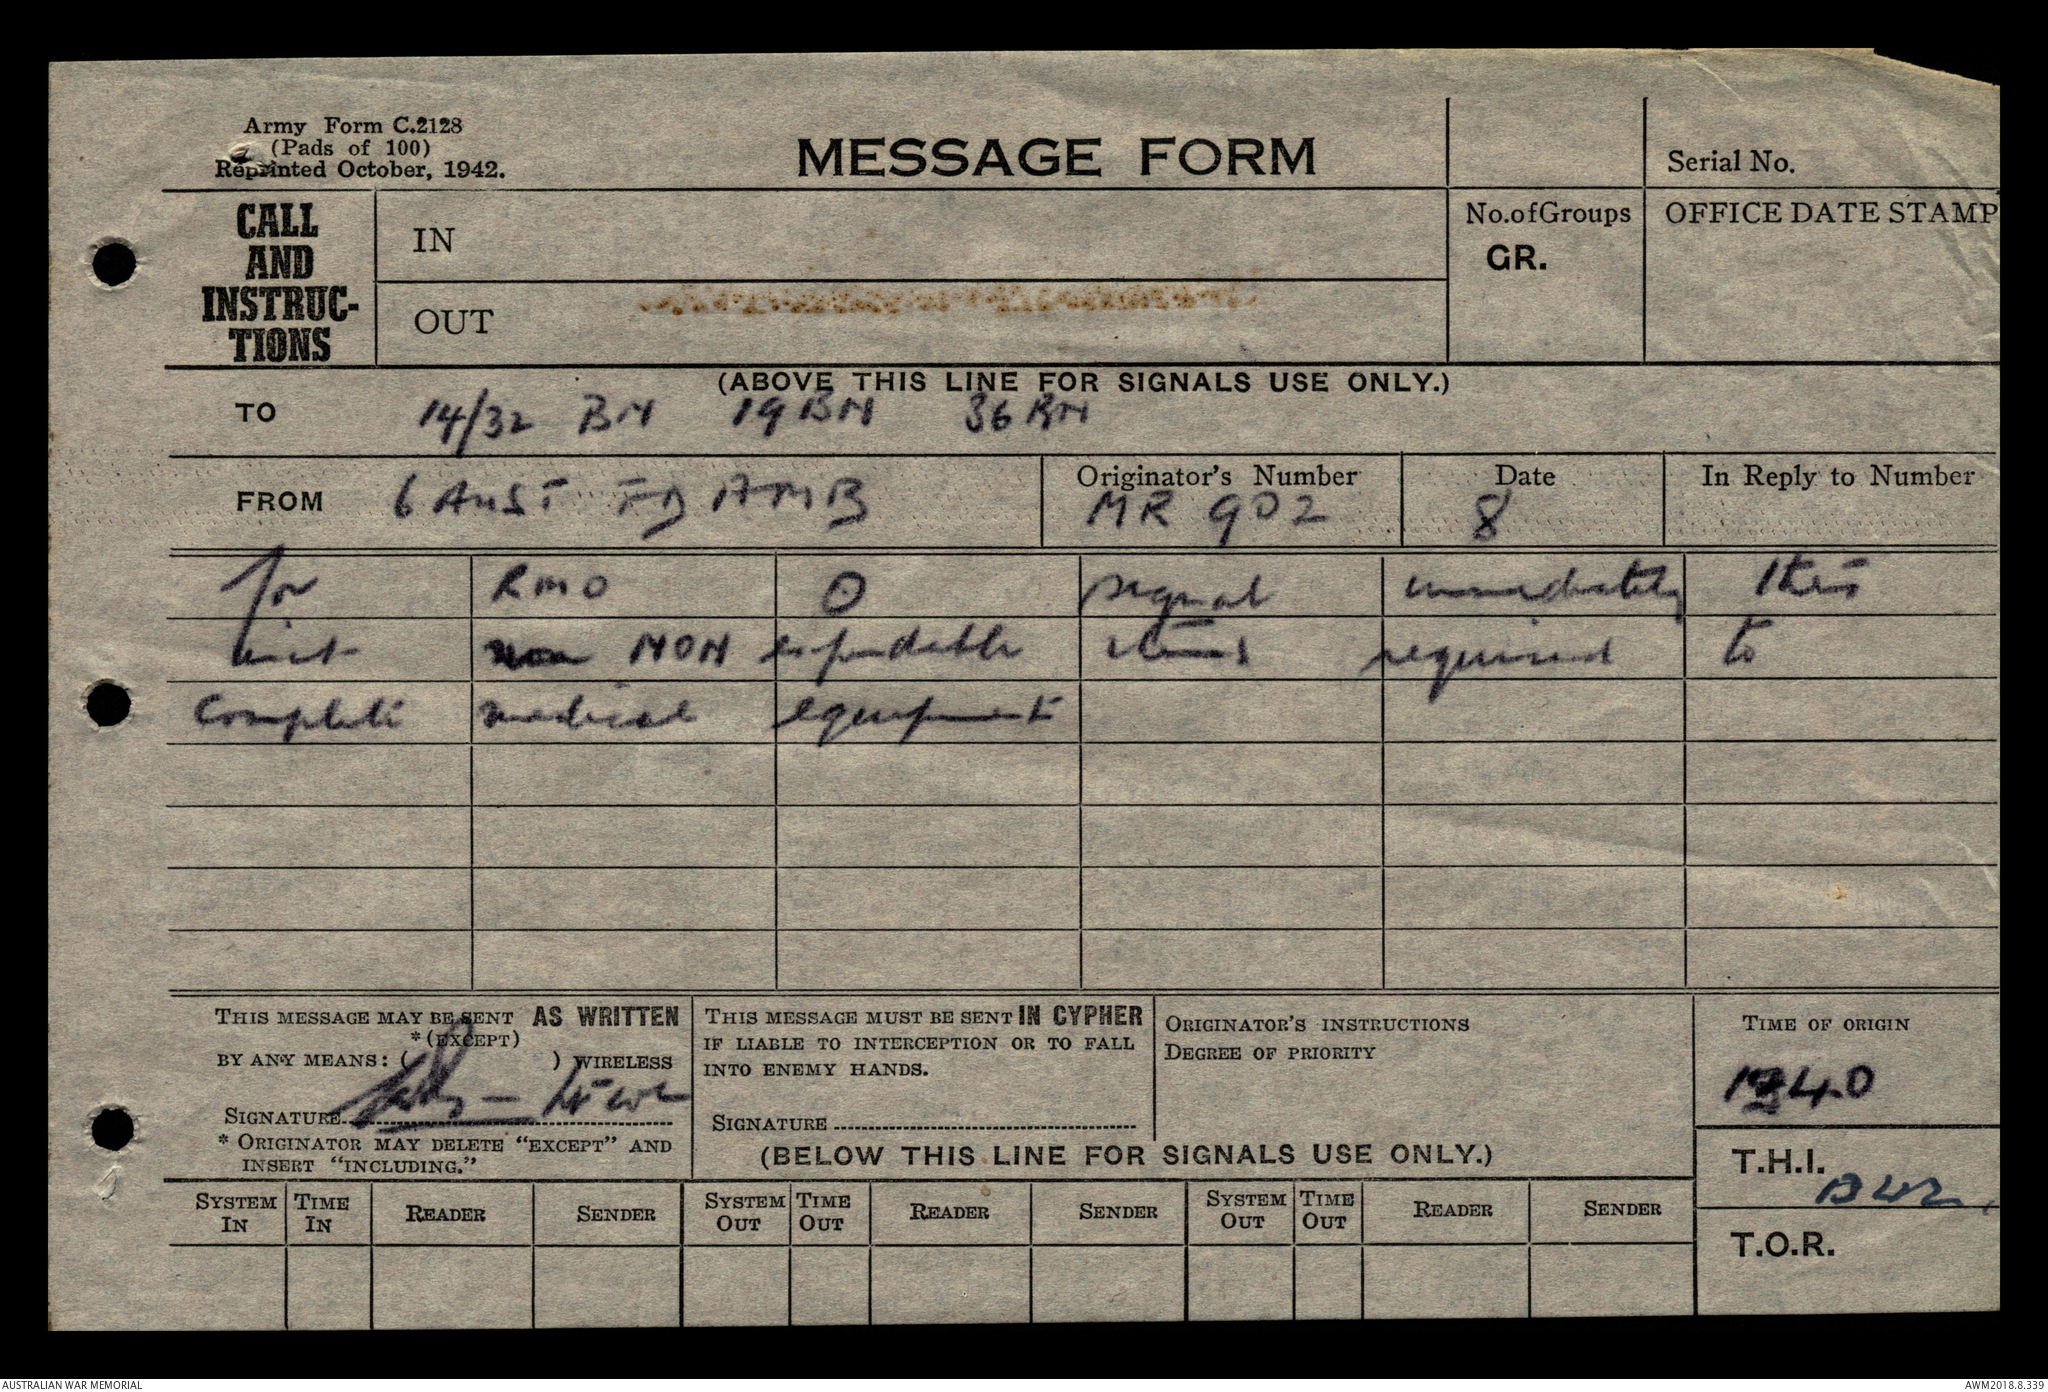 Army Form C.2128
(Pads of 100)
Reprinted October, 1942.
MESSAGE FORM
Serial No.
CALL
AND
INSTRUC-
TIONS
IN
OUT
No. of Groups
GR.
OFFICE DATE STAMP
(ABOVE THIS LINE FOR SIGNALS USE ONLY.)
TO 14/32 BN 19 BN 36 BN
FROM 6 AUST FD AMB
Originator's Number
MR 902
Date
8
In Reply to Number
for RMO O signal immediately
unit NON expendable items required to
complete medical equipment
THIS MESSAGE MAY BE SENT AS WRITTEN
*(EXCEPT)
BY ANY MEANS: ( ) WIRELESS
SIGNATURE
* ORIGINATOR MAY DELETE "EXCEPT" AND
INSERT "INCLUDING."
THIS MESSAGE MUST BE SENT IN CYPHER
IF LIABLE TO INTERCEPTION OR TO FALL
INTO ENEMY HANDS.
SIGNATURE
ORIGINATOR'S INSTRUCTIONS
DEGREE OF PRIORITY
TIME OF ORIGIN
(BELOW THIS LINE FOR SIGNALS USE ONLY.)
T.H.I.
T.O.R.
SYSTEM IN TIME IN READER SENDER SYSTEM OUT TIME OUT READER SENDER SYSTEM OUT TIME OUT READER SENDER
AUSTRALIAN WAR MEMORIAL
AWM2018.8.339